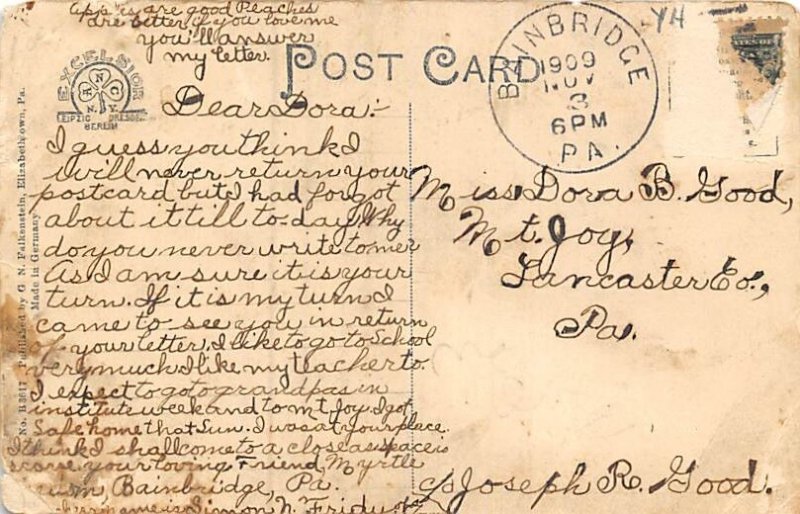 Apples are good Peaches
are better if you love me
you'll answer
my letter.
POST CARD
EXCELSIOR
A N C
N.Y.
LEIPZIG DRESDEN
BERLIN
No. B3617 Published by G. N. Falkenstein, Elizabethtown, Pa.
Made in Germany
BAINBRIDGE
1909
NOV
3
6 PM
PA.
YH
Dear Dora:-
I guess you think I
will never return your
postcard but I had forgot
about it till to-day Why
do you never write to me
As I am sure it is your
turn. If it is my turn I
came to see you in return
of your letter. I like to go to School
very much I like my teacher to.
I expect to go to grandpas in
institute week and to Mt Joy. I got
Safe home that Sun. I was at your place.
I think I shall come to a close as space is
scarce your loving Friend, Myrtle
Bainbridge, Pa.
name is Simon N. Fridy
Miss Dora B. Good,
Mt. Joy,
Lancaster Co.,
Pa.
c/o Joseph R. Good.